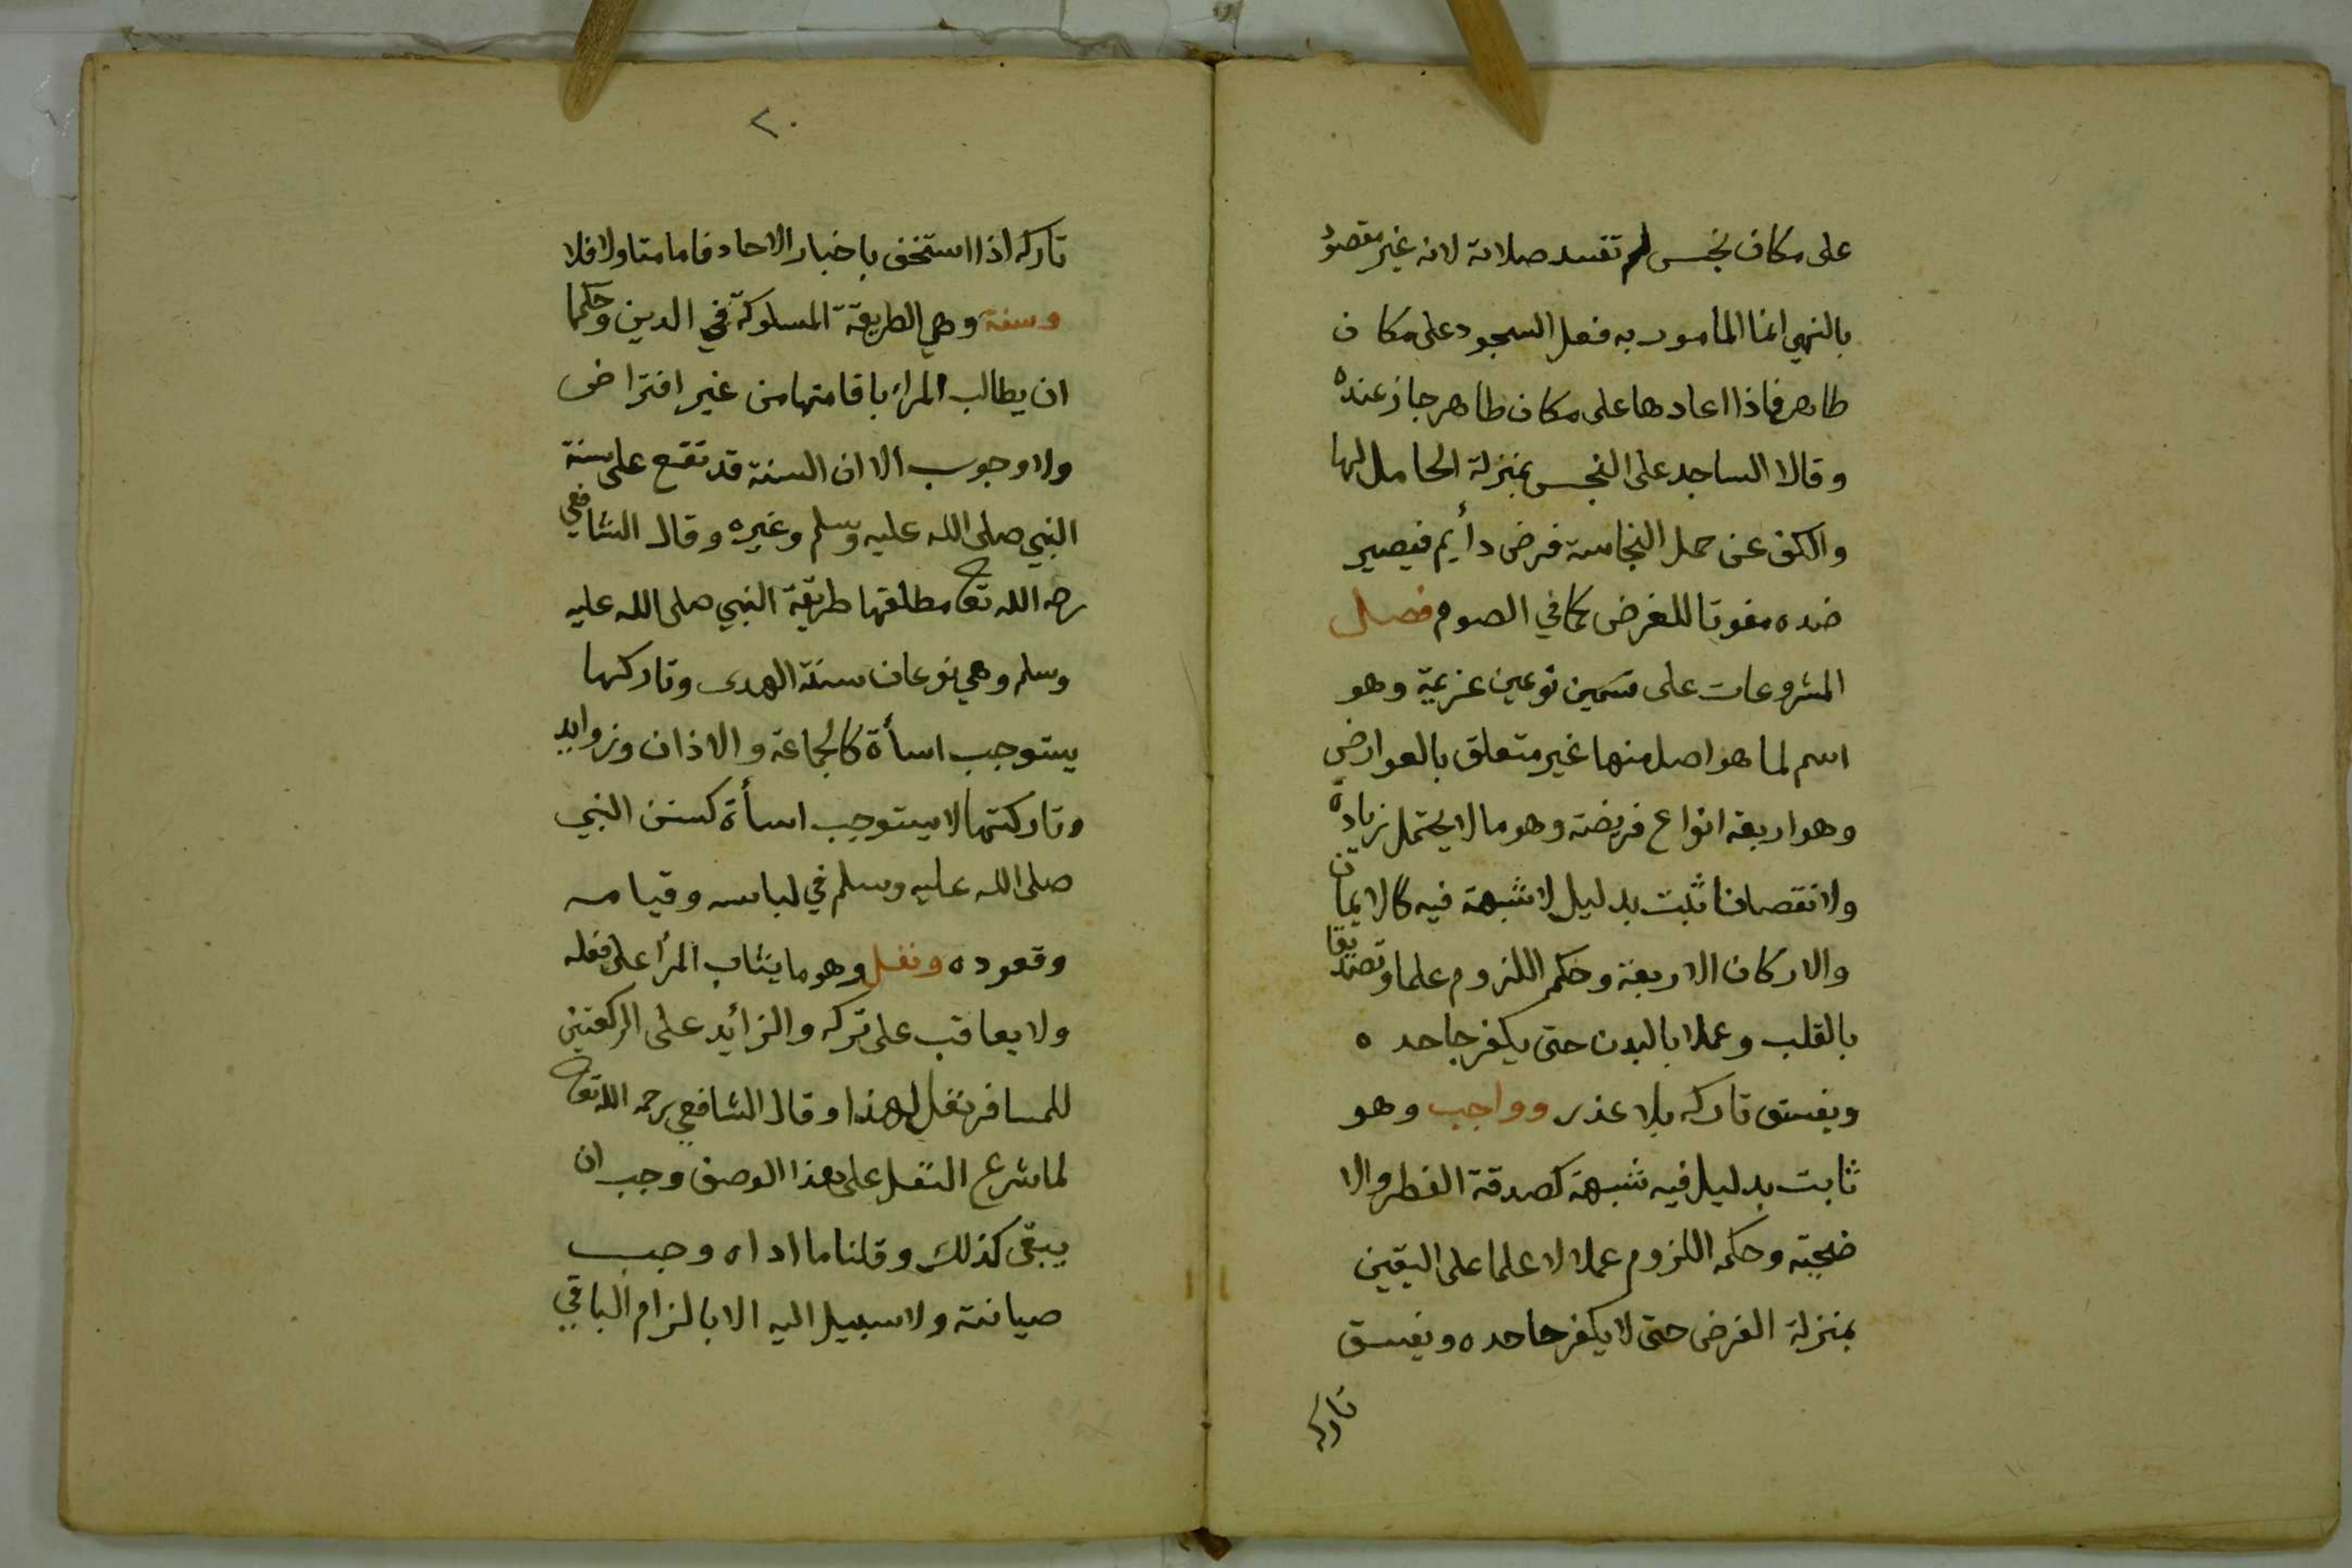 على مكان نجس لم تفسد صلاته لانه غير مقصود
بالنهي انما المامور به فعل السجود على مكان
طاهر فاذا اعادها على مكان طاهر جاز عنده
وقالا الساجد على النجس بمنزلة الحامل لها
والكف عن حمل النجاسة فرض دأيم فيصير
ضده مفوتا للفرض كما في الصوم فصل
المشروعات على قسمين نوعين عزيمة وهو
اسم لما هو اصل منها غير متعلق بالعوارض
وهو اربعة انواع فريضته وهو ما لا يحتمل زيادة
ولا نقصانا ثبت بدليل لا شبهة فيه كالايمان
والاركان الاربعة وحكم اللزوم علما وتصديقا
بالقلب وعملا بالبدن حتى يكفر جاحده
ويفسق تاركه بلا عذر وواجب وهو
ثابت بدليل فيه شبهة كصدقة الفطر والا
ضحية وحكمه اللزوم عملا لا علما على اليقين
بمنزلة الفرض حتى لا يكفر جاحده ويفسق
تاركه
٢٠
تاركه اذا استخف باخبار الاحاد فاما متاولا فلا
وسنة وهي الطريقة المسلوكة في الدين وحكمها
ان يطالب المراء باقامتها من غير افتراض
ولا وجوب الا ان السنة قد تقع على سنة
النبي صلى الله عليه وسلم وغيره وقال الشافعي
رحمه الله تعا مطلقها طريقة النبي صلى الله عليه
وسلم وهي نوعان سنة الهدى وتاركها
يستوجب اسأة كالجماعة والاذان وزوايد
وتاركتها لا يستوجب اسأة كسنن النبي
صلى الله عليه وسلم في لباسه وقيامه
وقعوده ونفل وهو ما يثاب المرأ على فعله
ولا يعاقب على تركه والزائد على الركعتين
للمسافر نفل لهذا وقال الشافعي رحمه الله تعا
لما شرع النفل على هذا الوصف وجب ان
يبقى كذلك وقلنا ما اداه وجب
صيانته ولا سبيل اليه الا بالزام الباقي